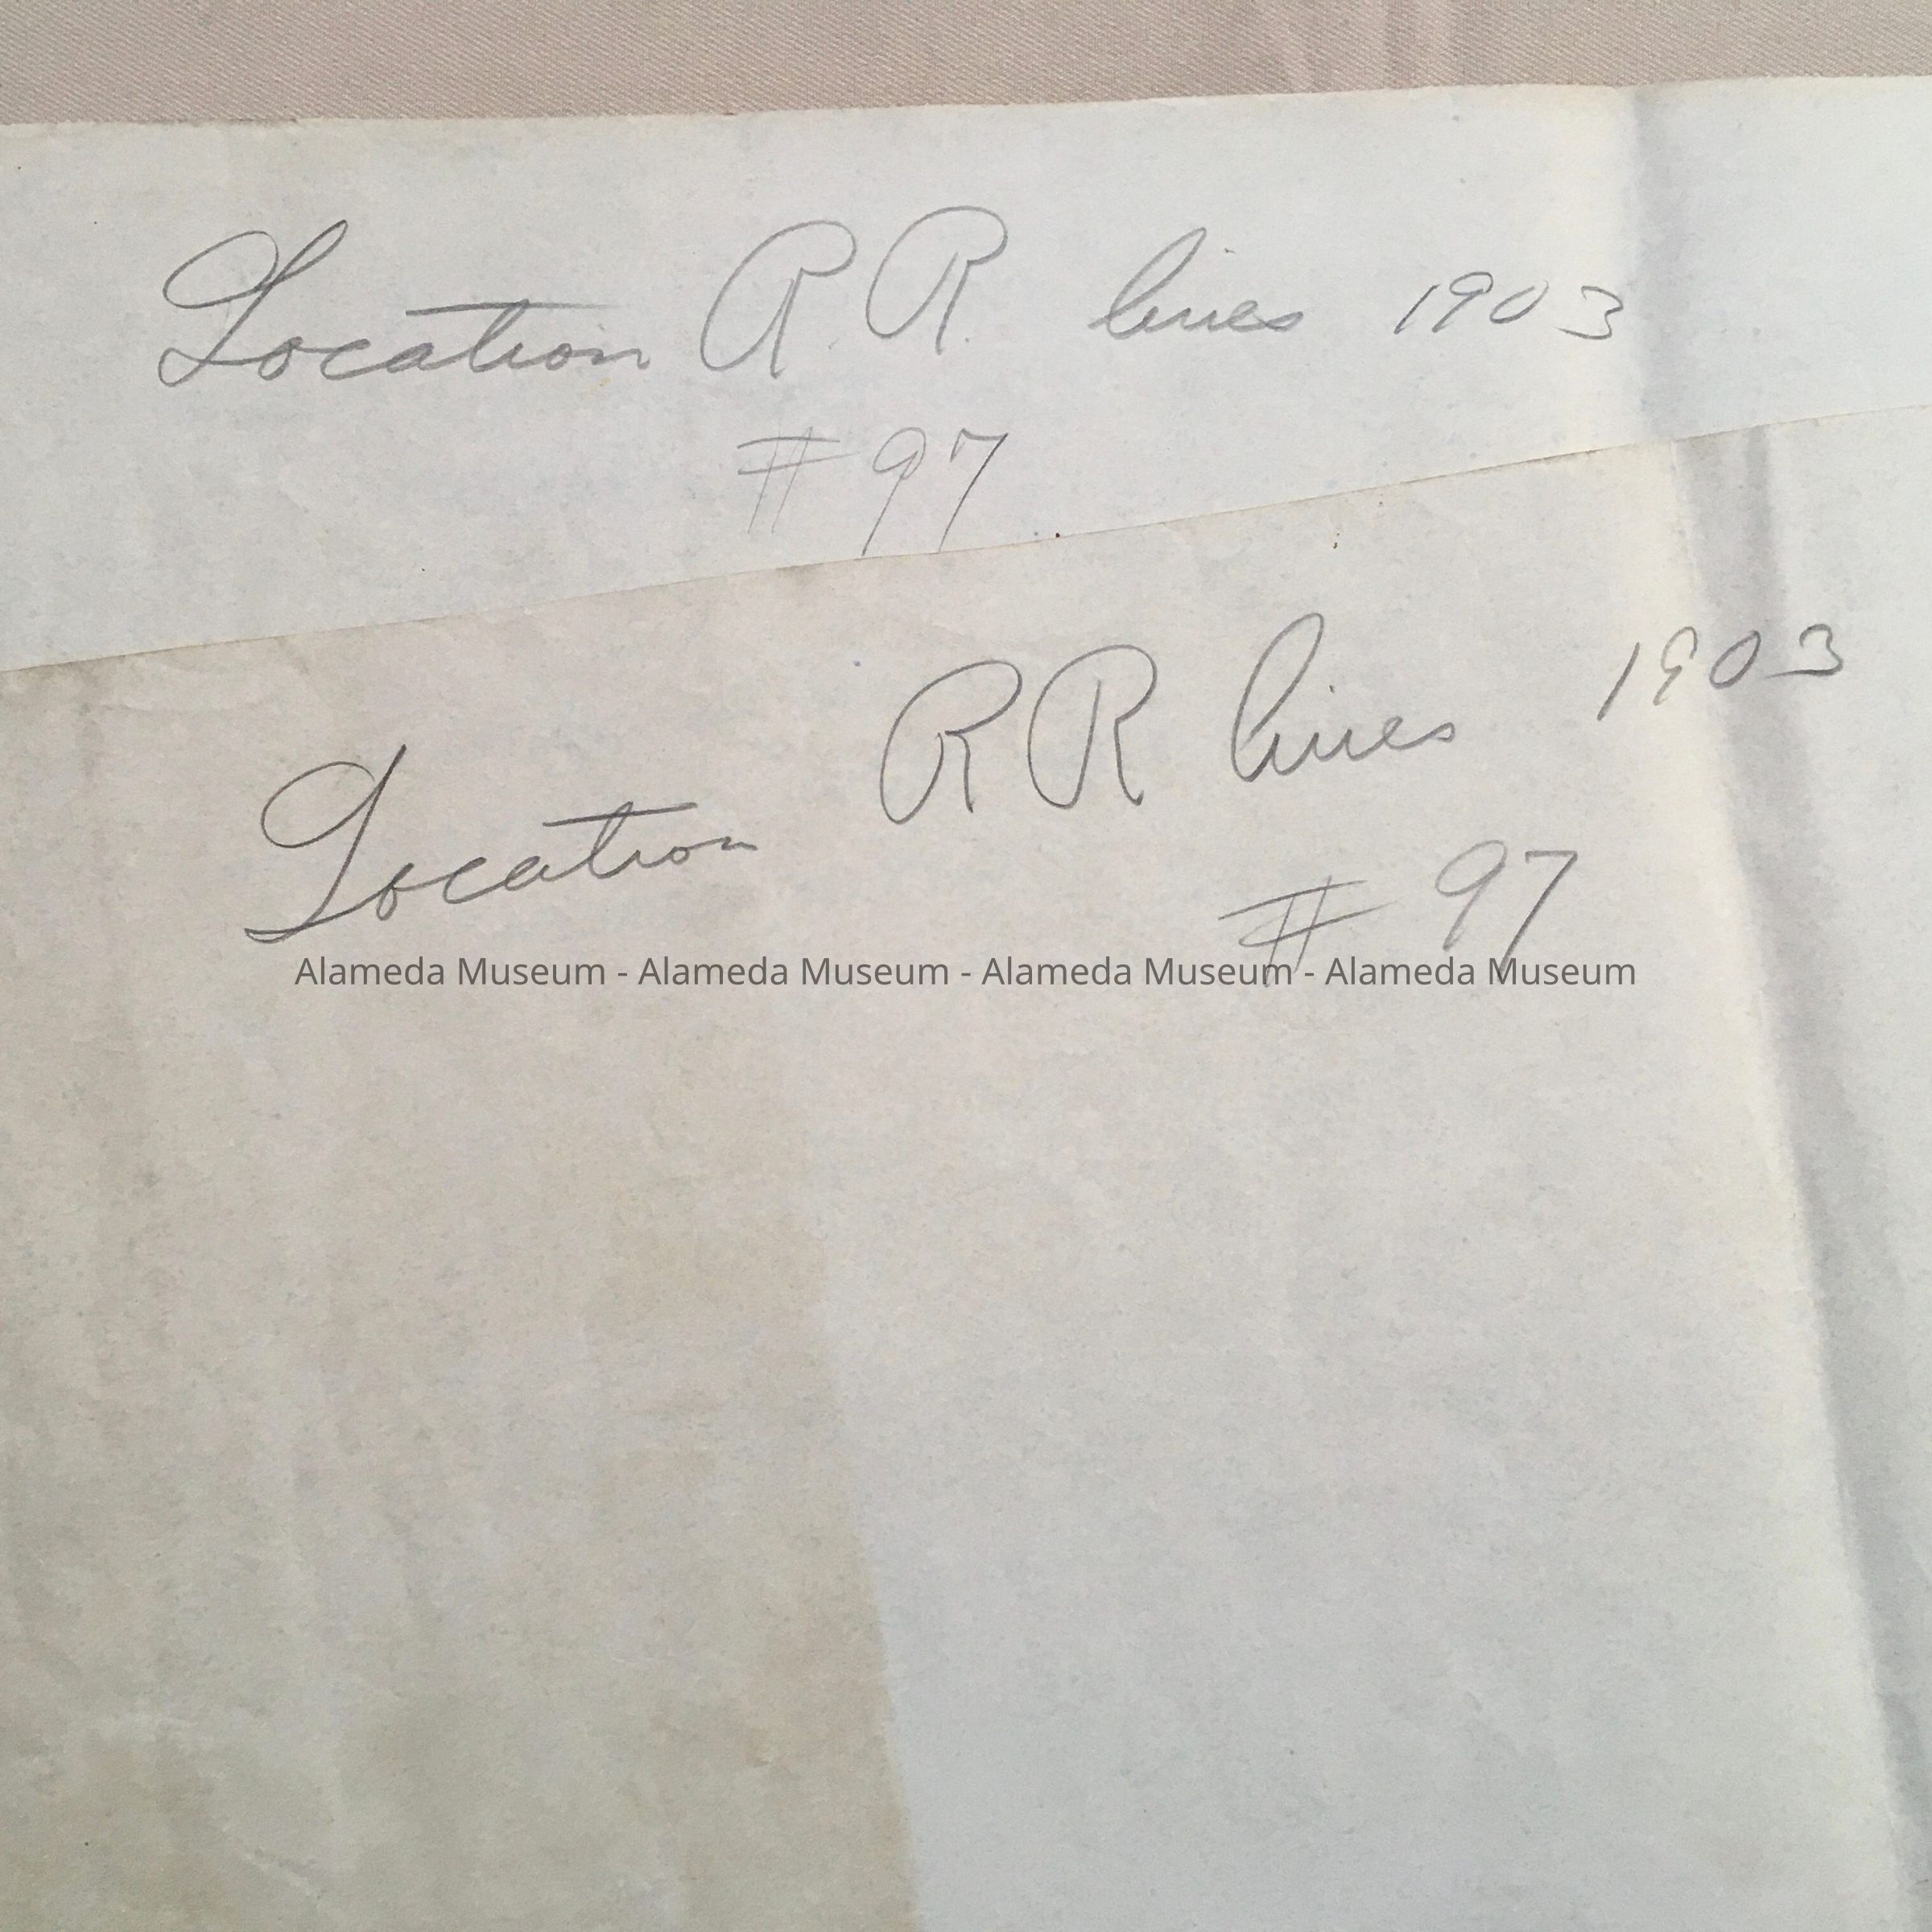 Location R.R. lines 1903
# 97
Location RR lines 1903
# 97
Alameda Museum - Alameda Museum - Alameda Museum - Alameda Museum